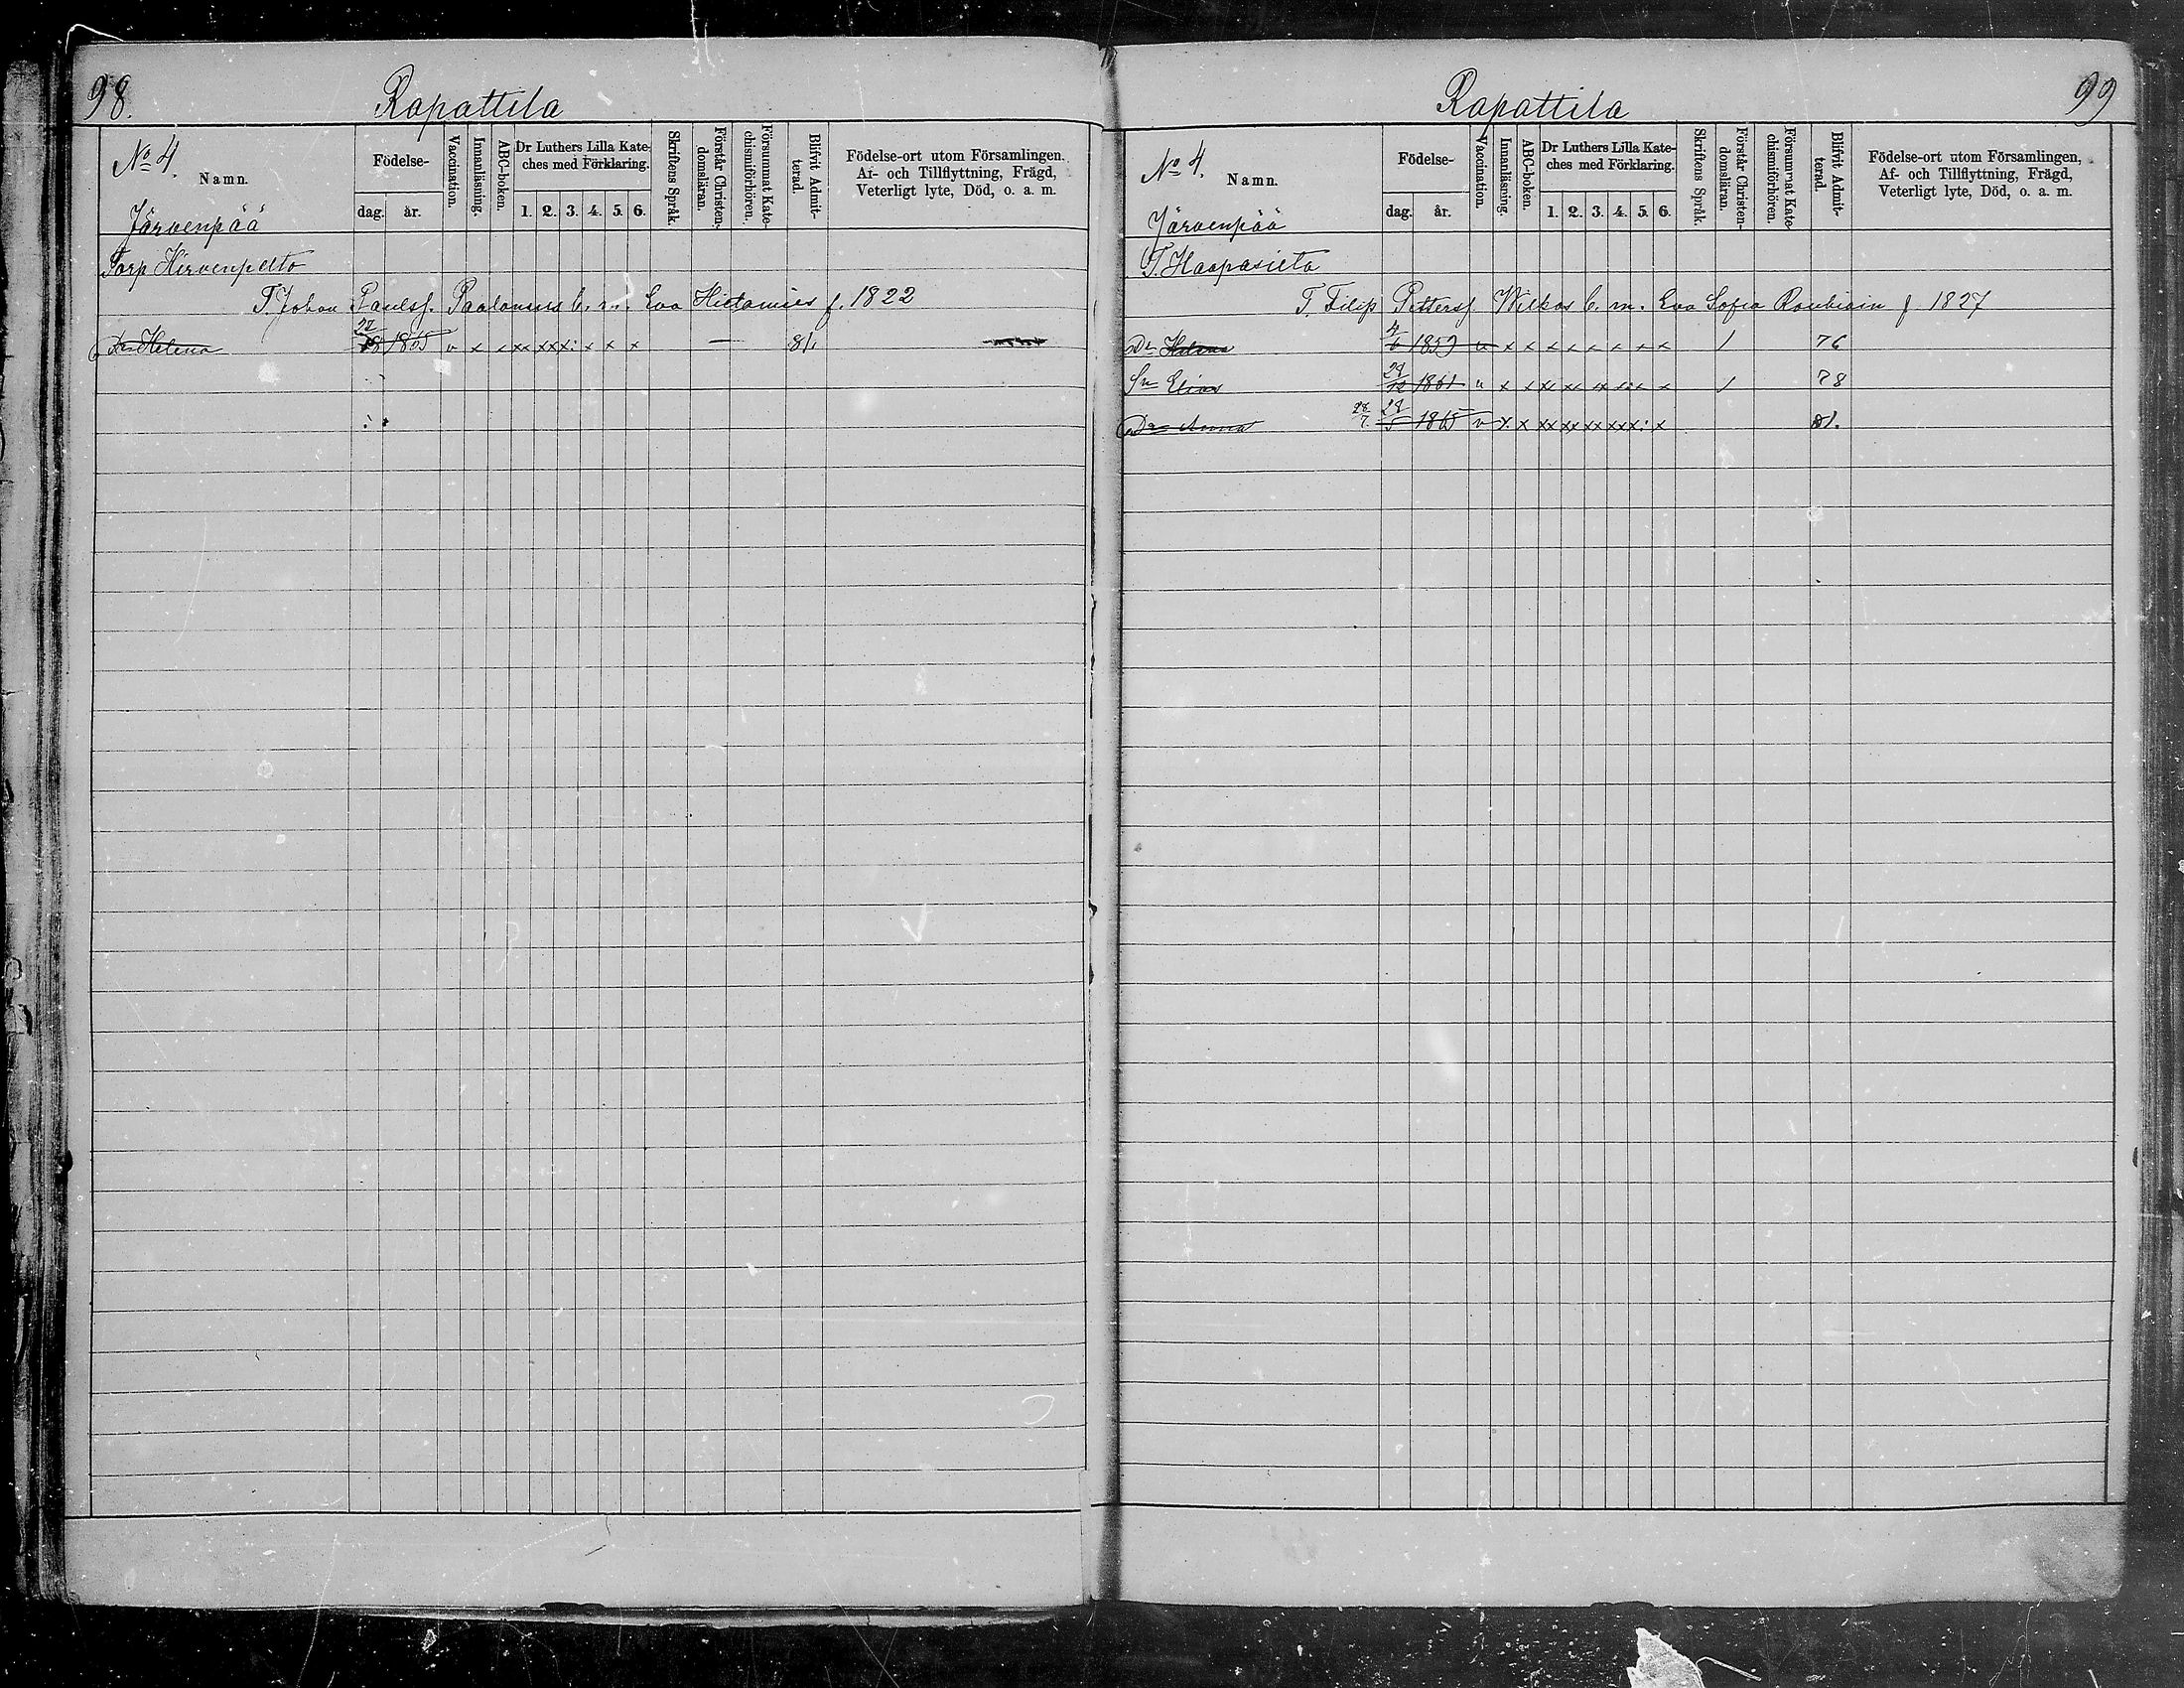 98.
Rapattila
No 4.
Namn.
Födelse-
dag. år.
Vaccination.
Innanläsning.
ABC-boken.
Dr Luthers Lilla Kate-
ches med Förklaring.
1. 2. 3. 4. 5. 6.
Skriftens Språk.
Förstår Christen-
domsläran.
Försummat Kate-
chismiförhören.
Blifvit Admit-
terad.
Födelse-ort utom Församlingen.
Af- och Tillflyttning, Frägd,
Veterligt lyte, Död, o. a. m.
Järvenpää
Torp Hirvenpelto
T. Johan Paulsf. Paalanens E. m. Eva Hietamies f. 1822
Dr Helena 1865 v x x xx xx x: x x x — 81.
99
Rapattila
No 4.
Namn.
Födelse-
dag. år.
Vaccination.
Innanläsning.
ABC-boken.
Dr Luthers Lilla Kate-
ches med Förklaring.
1. 2. 3. 4. 5. 6.
Skriftens Språk.
Förstår Christen-
domsläran.
Försummat Kate-
chismiförhören.
Blifvit Admit-
terad.
Födelse-ort utom Församlingen,
Af- och Tillflyttning, Frägd,
Veterligt lyte, Död, o. a. m.
Järvenpää
T. Haapasilta
T. Filip Pettersf. Wilkas E. m. Eva Sofia f 1827
Dr Helena 4/6 1859 v x x x x x x x x / 76
Sn Elias 29/12 1861 v x x xx xx xx x: x x / 78
Dr Anna 28/7. 28/5 1865 v x x xx xx xx xx x: x 81.